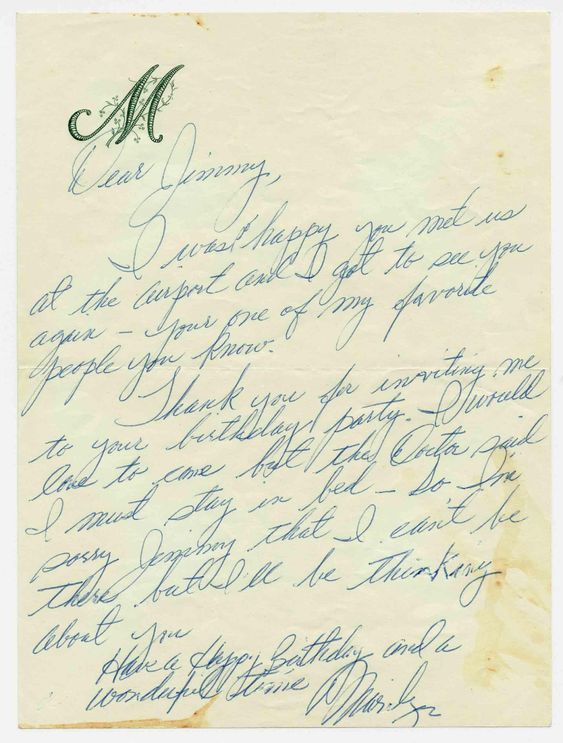 M
Dear Jimmy,
I was happy you met us
at the airport and I got to see you
again – your one of my favorite
people you know.
Thank you for inviting me
to your birthday party. I would
love to come but the Doctor said
I must stay in bed – So I'm
sorry Jimmy that I can't be
there but I'll be thinking
about you
Have a Happy Birthday and a
wonderful time Marilyn